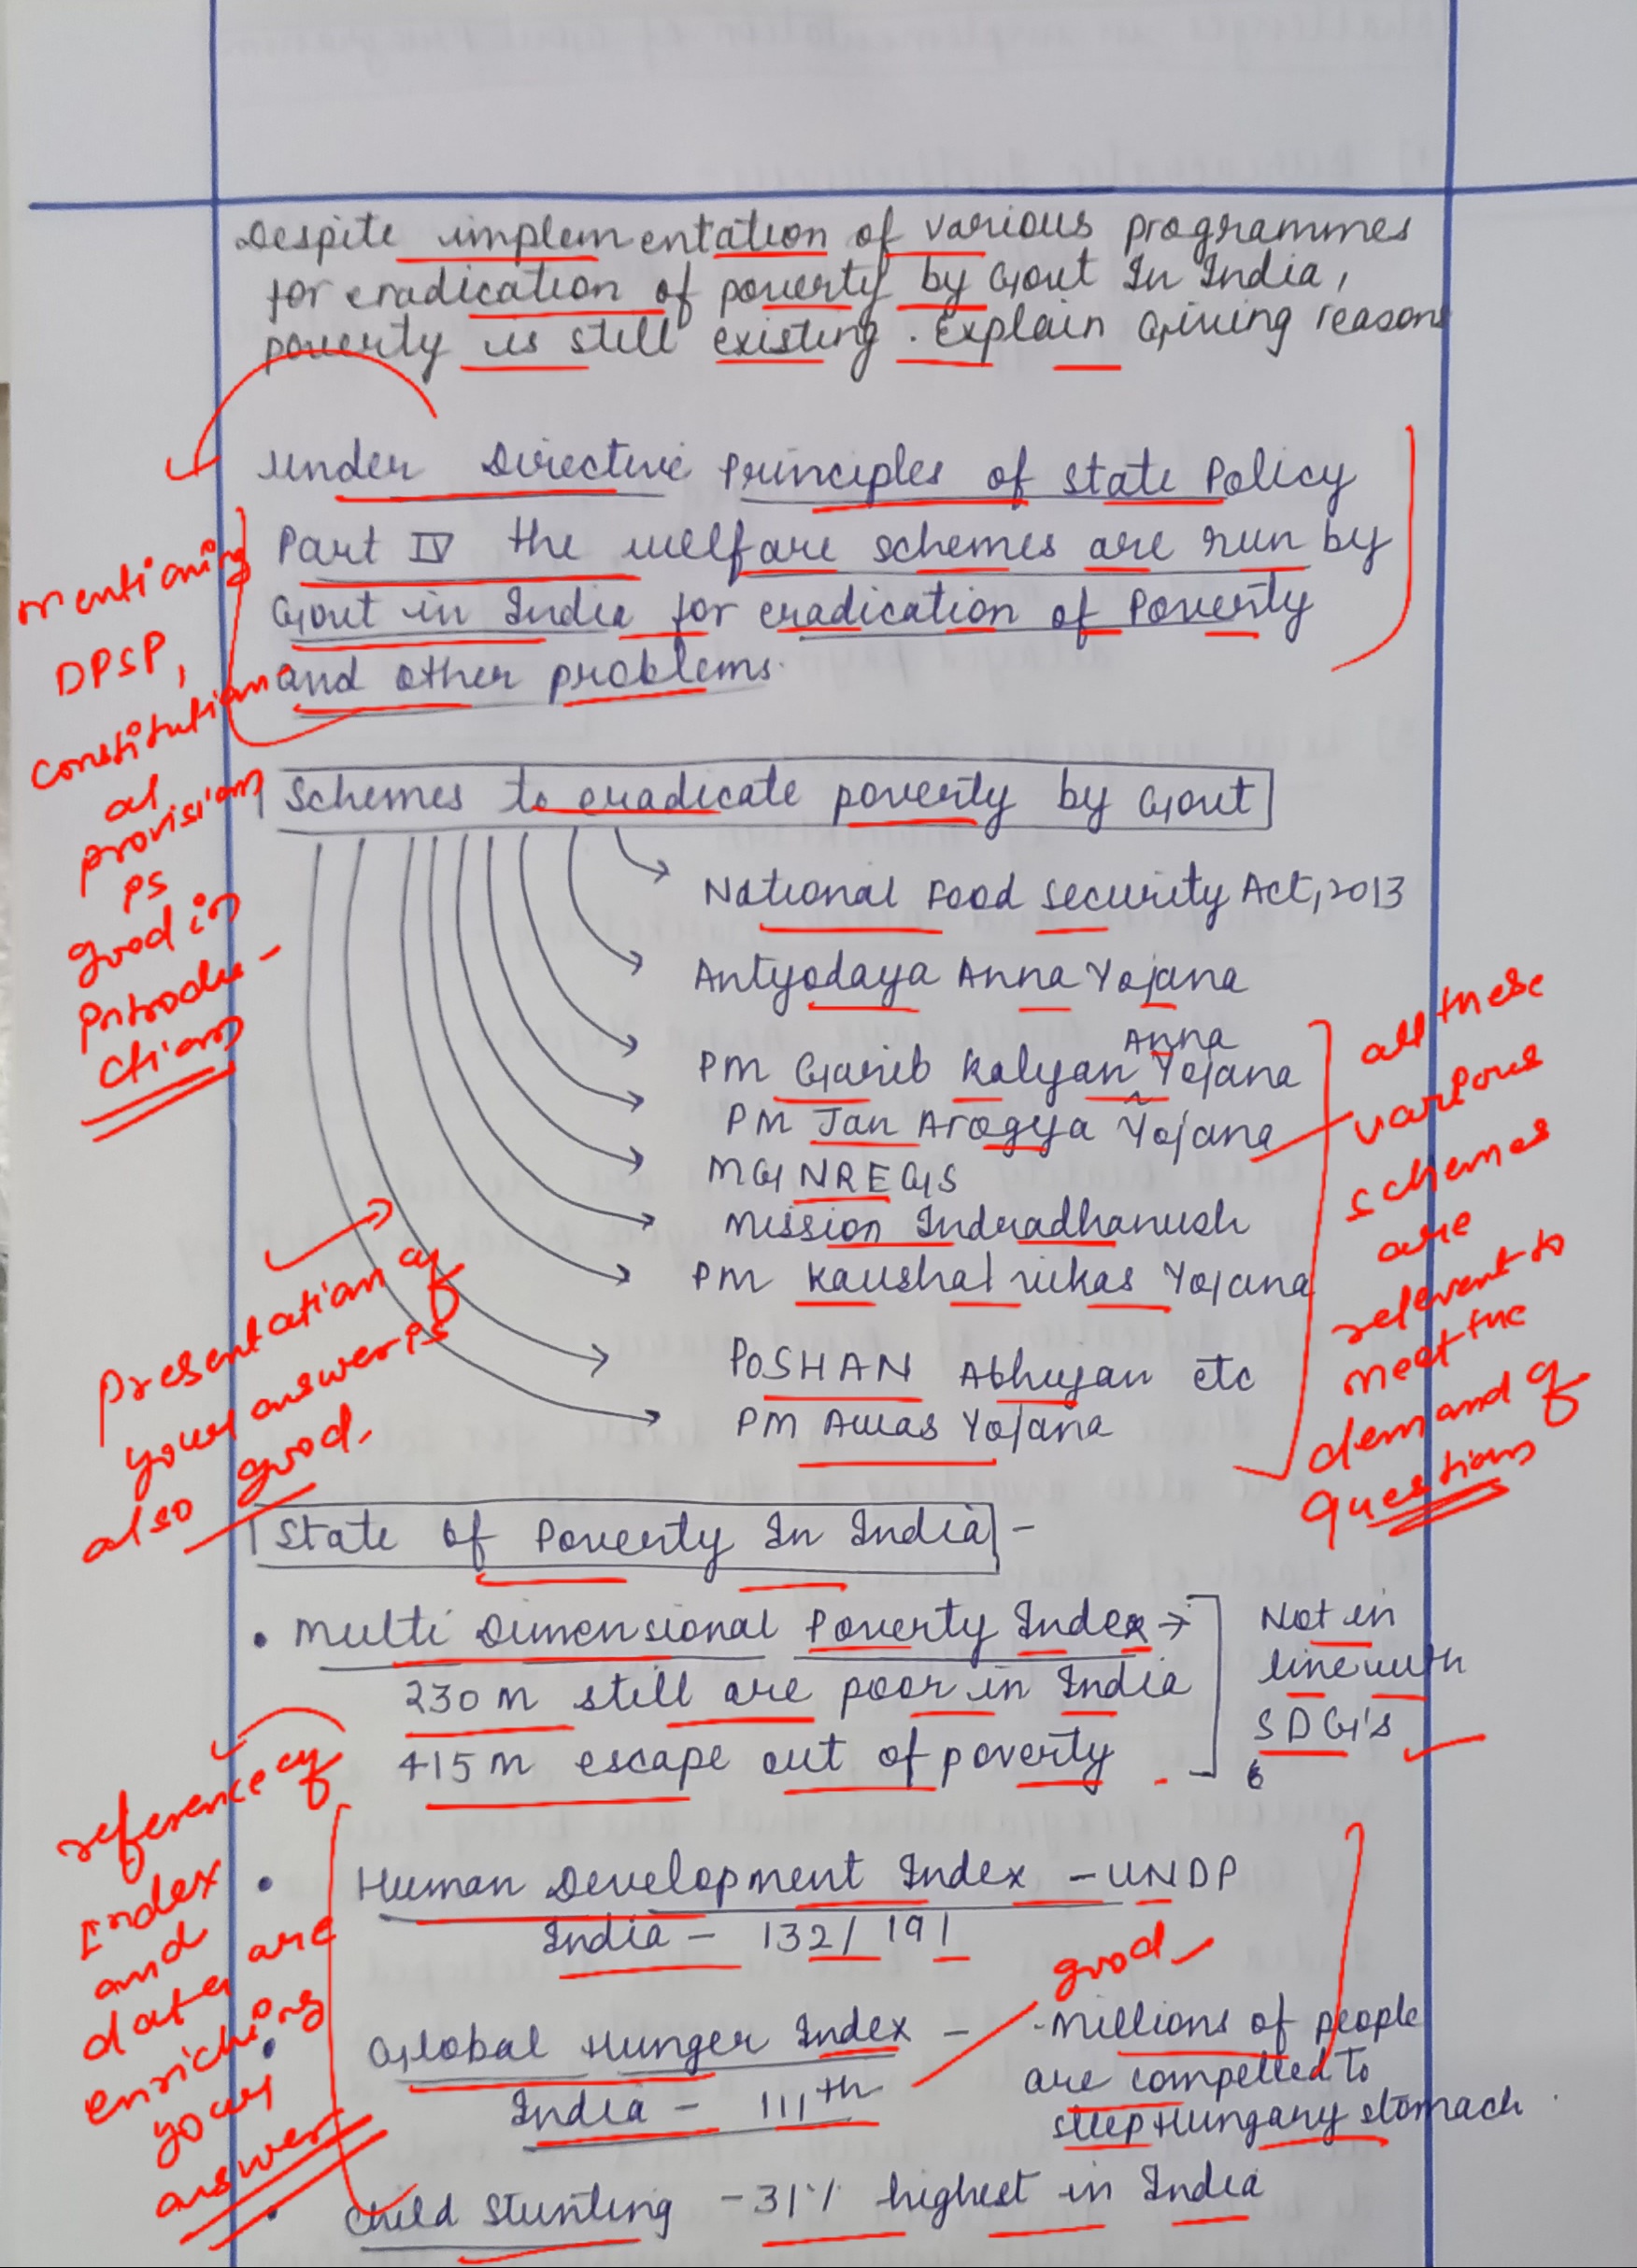 Despite implementation of various programmes
for eradication of poverty by Govt In India,
poverty is still existing. Explain Giving reasons
under Directive Principles of State Policy
Part IV the welfare schemes are run by
Govt in India for eradication of Poverty
and other problems.
mentioning
DPSP,
constitution
al
provision
is
good in
introdu-
ction
Schemes to eradicate poverty by Govt
National Food Security Act, 2013
Antyodaya Anna Yojana
Anna
PM Garib Kalyan Yojana
PM Jan Arogya Yojana
MGNREGS
Mission Indradhanush
PM Kaushal vikas Yojana
POSHAN Abhiyan etc
PM Awas Yojana
all these
various
schemes
are
relevent to
meet the
demand of
question
Presentation of
your answer is
also good.
State of Poverty In India -
• Multi Dimensional Poverty Index →
230 m still are poor in India
415 m escape out of poverty
Not in
line with
SDG's
reference of
Index
and
data are
enriching
your
answer
• Human Development Index - UNDP
India - 132/191
good
• Global Hunger Index - - Millions of people
are compelled to
sleep Hungary stomach
India - 111th
• Child Stunting - 31% highest in India